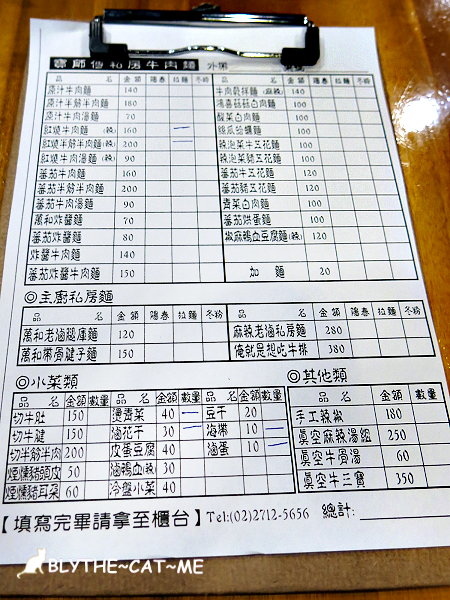 師傅私房牛肉麵 外帶
品 名 金額 陽春 拉麵 冬粉 品 名 金額 陽春 拉麵 冬粉
原汁牛肉麵 140 牛肉乾拌麵(麻辣) 140
原汁半筋半肉麵 180 鴻喜菇菇白肉麵 100
原汁牛肉湯麵 70 酸菜白肉麵 100
紅燒牛肉麵(辣) 160 絲瓜蛤蠣麵 100
紅燒半筋半肉麵(辣) 200 辣泡菜牛五花麵 120
紅燒牛肉湯麵(辣) 90 辣泡菜豬五花麵 120
蕃茄牛肉麵 160 蕃茄牛五花麵 120
蕃茄半筋半肉麵 200 蕃茄豬五花麵 120
蕃茄牛肉湯麵 90 青菜白肉麵 100
萬和炸醬麵 70 蕃茄烘蛋麵 100
蕃茄炸醬麵 80 椒麻鴨血豆腐麵(辣) 120
炸醬牛肉麵 140
蕃茄炸醬牛肉麵 150 加 麵 20
◎主廚私房麵
品 名 金額 陽春 拉麵 冬粉 品 名 金額 陽春 拉麵 冬粉
萬和老滷腿庫麵 120 麻辣老滷私房麵 280
萬和帶骨腱子麵 150 俺就是想吃牛排 380
◎小菜類 ◎其他類
品 名 金額 數量 品 名 金額 數量 品 名 金額 數量 品 名 金額 數量
切牛肚 150 燙青菜 40 豆干 20 手工辣椒 180
切牛腱 150 滷花干 30 海帶 10 真空麻辣湯組 250
切半筋半肉 200 皮蛋豆腐 40 滷蛋 10 真空牛骨湯 60
煙燻豬頭皮 50 滷鴨血(辣) 30 真空牛三寶 350
煙燻豬耳菜 60 冷盤小菜 40
【填寫完畢請拿至櫃台】Tel:(02)2712-5656 總計:
BLYTHE~CAT~ME